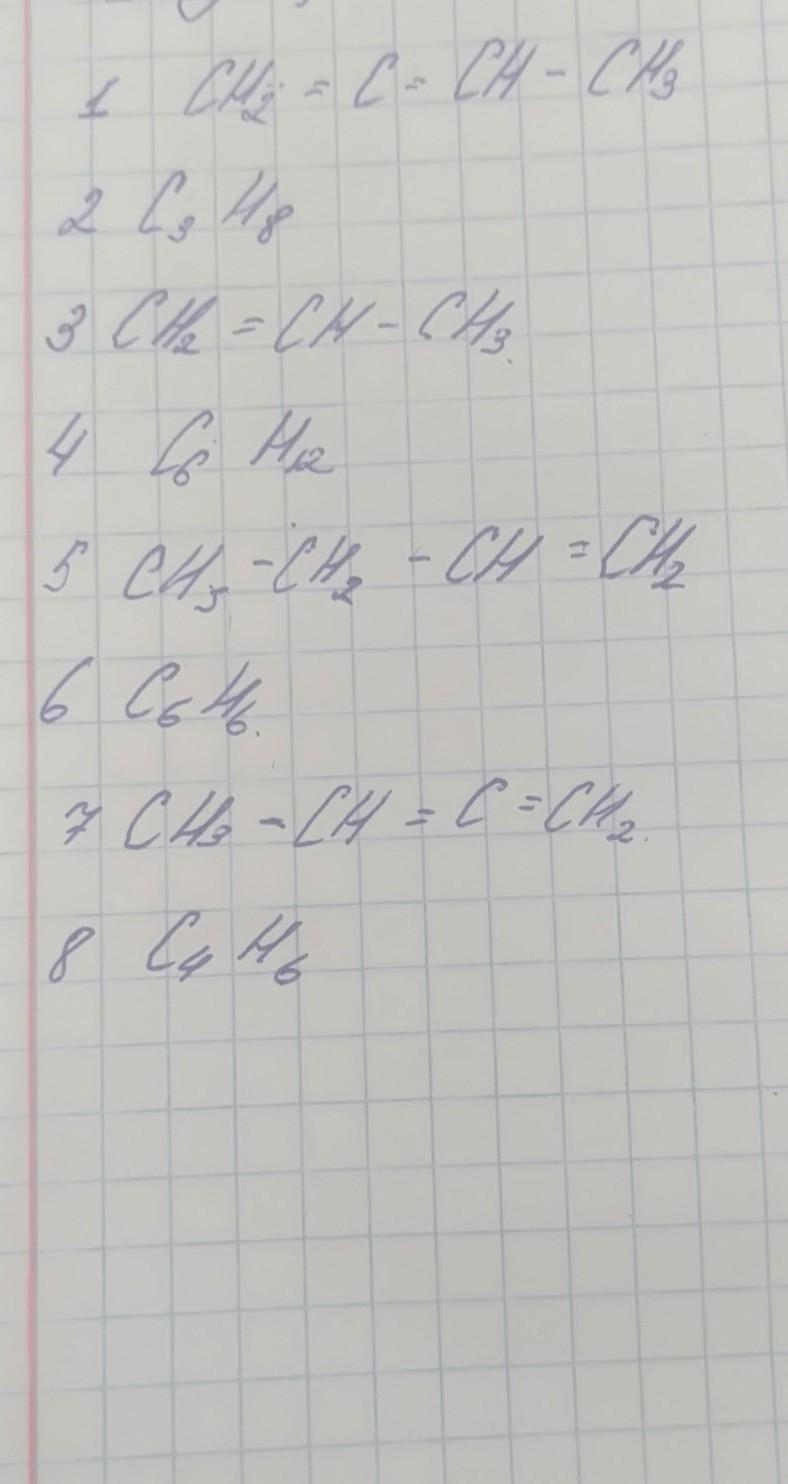 1 CH₂ = C = CH - CH₃
2 C₃ H₈
3 CH₂ = CH - CH₃.
4 C₆ H₁₂
5 CH₃ - CH₂ - CH = CH₂
6 C₆ H₆.
7 CH₃ - CH = C = CH₂.
8 C₄ H₆